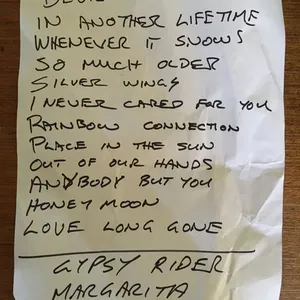 IN ANOTHER LIFETIME
WHENEVER IT SNOWS
SO MUCH OLDER
SILVER WINGS
I NEVER CARED FOR YOU
RAINBOW CONNECTION
PLACE IN THE SUN
OUT OF OUR HANDS
ANYBODY BUT YOU
HONEY MOON
LOVE LONG GONE
GYPSY RIDER
MARGARITA